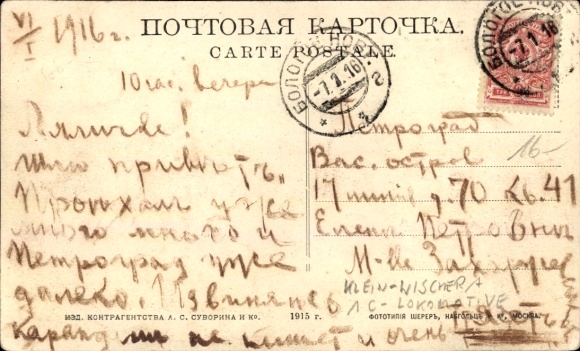 VI/I 1916 г.
ПОЧТОВАЯ КАРТОЧКА.
CARTE POSTALE.
БОЛОГОЕ НОВГ.
-7.1.16
2
БОЛОГОЕ НОВГ.
-7.1.16
10 час. вечера
Ляличка!
Шлю привѣтъ.
Проѣхалъ уже
много много и
Петроград уже
далеко. Извиняюсь
карандаш не пишет и очень
Петроград
Вас. остров
17 линия д. 70 кв. 41
Елене Петровне
М-lle
16-
KLEIN-WISCHERA
1 C - LOKOMOTIVE
ИЗД. КОНТРАГЕНТСТВА А. С. СУВОРИНА И Ко. 1915 г. ФОТОТИПІЯ ШЕРЕРЪ, НАБГОЛЬЦЪ И Ко, МОСКВА.